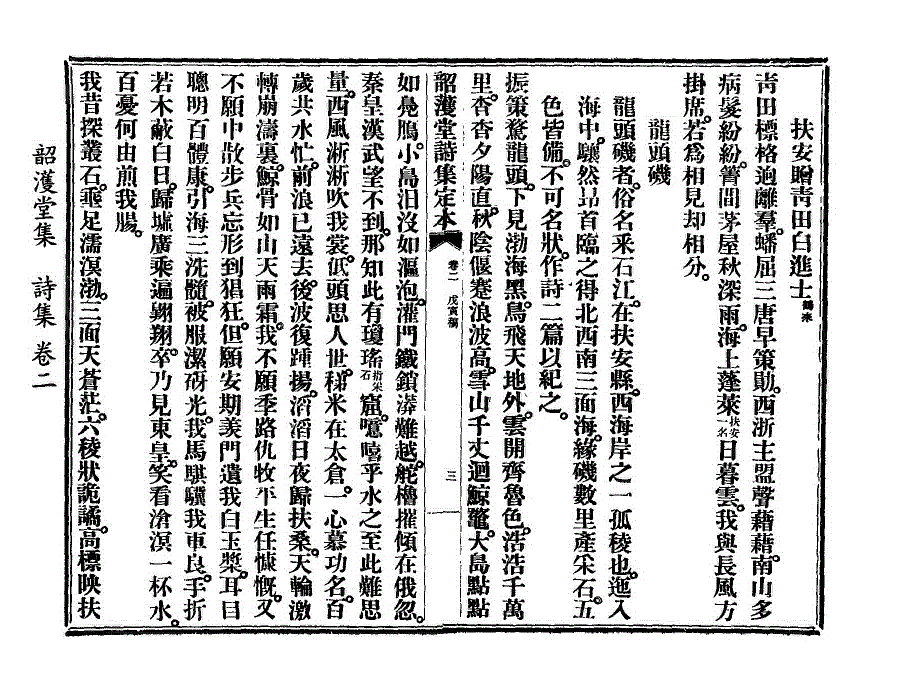 扶安贈靑田白進士 鶴來
靑田標格逈離羣蟠屈三唐早策勛西浙主盟聲藉藉南山多
病髮紛紛篝間茅屋秋深雨海上蓬萊扶安一名日暮雲我與長風方
掛席若爲相見却相分
龍頭磯
龍頭磯者俗名釆石江在扶安縣西海岸之一孤稜也迤入
海中驤然昻首臨之得北西南三面海緣磯數里產采石五
色皆備不可名狀作詩二篇以紀之
振策騖龍頭下見渤海黑鳥飛天地外雲開齊魯色浩浩千萬
里杳杳夕陽直秋陰偃蹇浪波高雪山千丈迴鯨鼇大島點點
韶濩堂詩集定本 卷二 戊寅稿 三
如鳧鴈小島汨沒如漚泡灌門鐵鎖漭難越舵櫓摧傾在俄忽
秦皇漢武望不到那知此有瓊瑤指采石窟噫嘻乎水之至此難思
量西風淅淅吹我裳低頭思人世稊米在太倉一心慕功名百
歲共水忙前浪已遠去後波復踵揚滔滔日夜歸扶桑天輪激
轉崩濤裏鯨骨如山天雨霜我不願季路仇牧平生任慷慨又
不願中散步兵忘形到猖狂但願安期羨門遺我白玉漿耳目
聰明百體康引海三洗髓被服潔硏光我馬騏驥我車良手折
若木蔽白日歸墟廣乘遍翱翔卒乃見東皇笑看滄溟一杯水
百憂何由煎我腸
我昔探叢石垂足濡溟渤三面天蒼茫六稜狀詭譎高標映扶
韶濩堂集 詩集 卷二